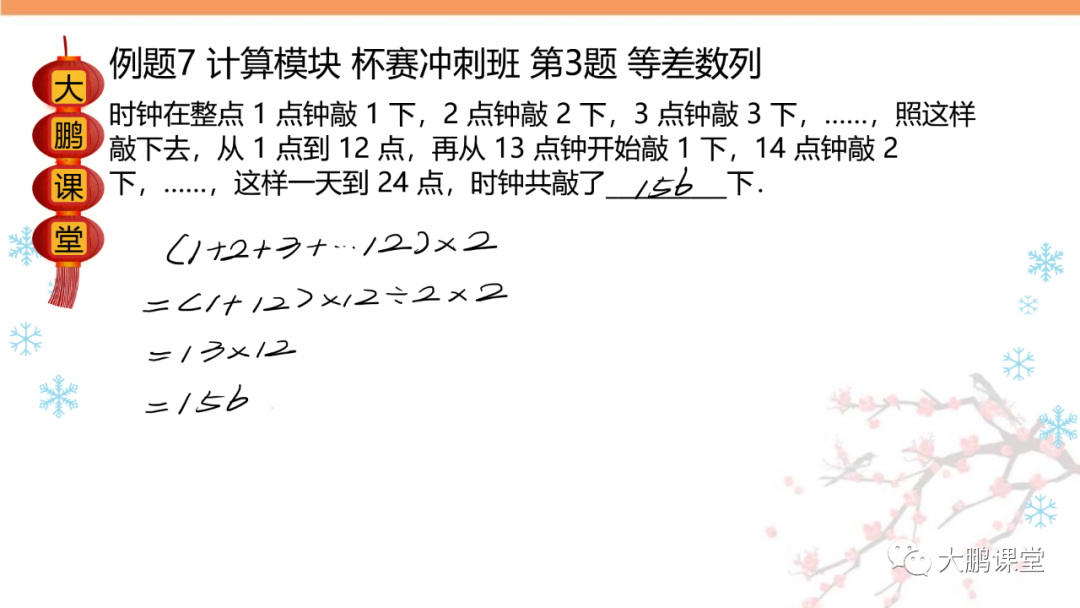 大鹏课堂
例题7 计算模块 杯赛冲刺班 第3题 等差数列
时钟在整点 1 点钟敲 1 下，2 点钟敲 2 下，3 点钟敲 3 下，……，照这样
敲下去，从 1 点到 12 点，再从 13 点钟开始敲 1 下，14 点钟敲 2
下，……，这样一天到 24 点，时钟共敲了 156 下.
(1+2+3+…12)×2
=(1+12)×12÷2×2
=13×12
=156
大鹏课堂